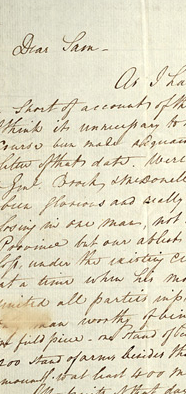 Dear Sam -
As I ha
short of account of th
think its unnecessary to
course been made acquain
letter of that date. Were
Genl Brock, & McDonell
been glorious and really
losing in one man, not
Province but our ablest
loss, under the existing ci
at a time when his mo
united all parties in
man worthy of bein
field piece - a Stand of
200 stand of arms besides the
amount to at least 400 m
of that da